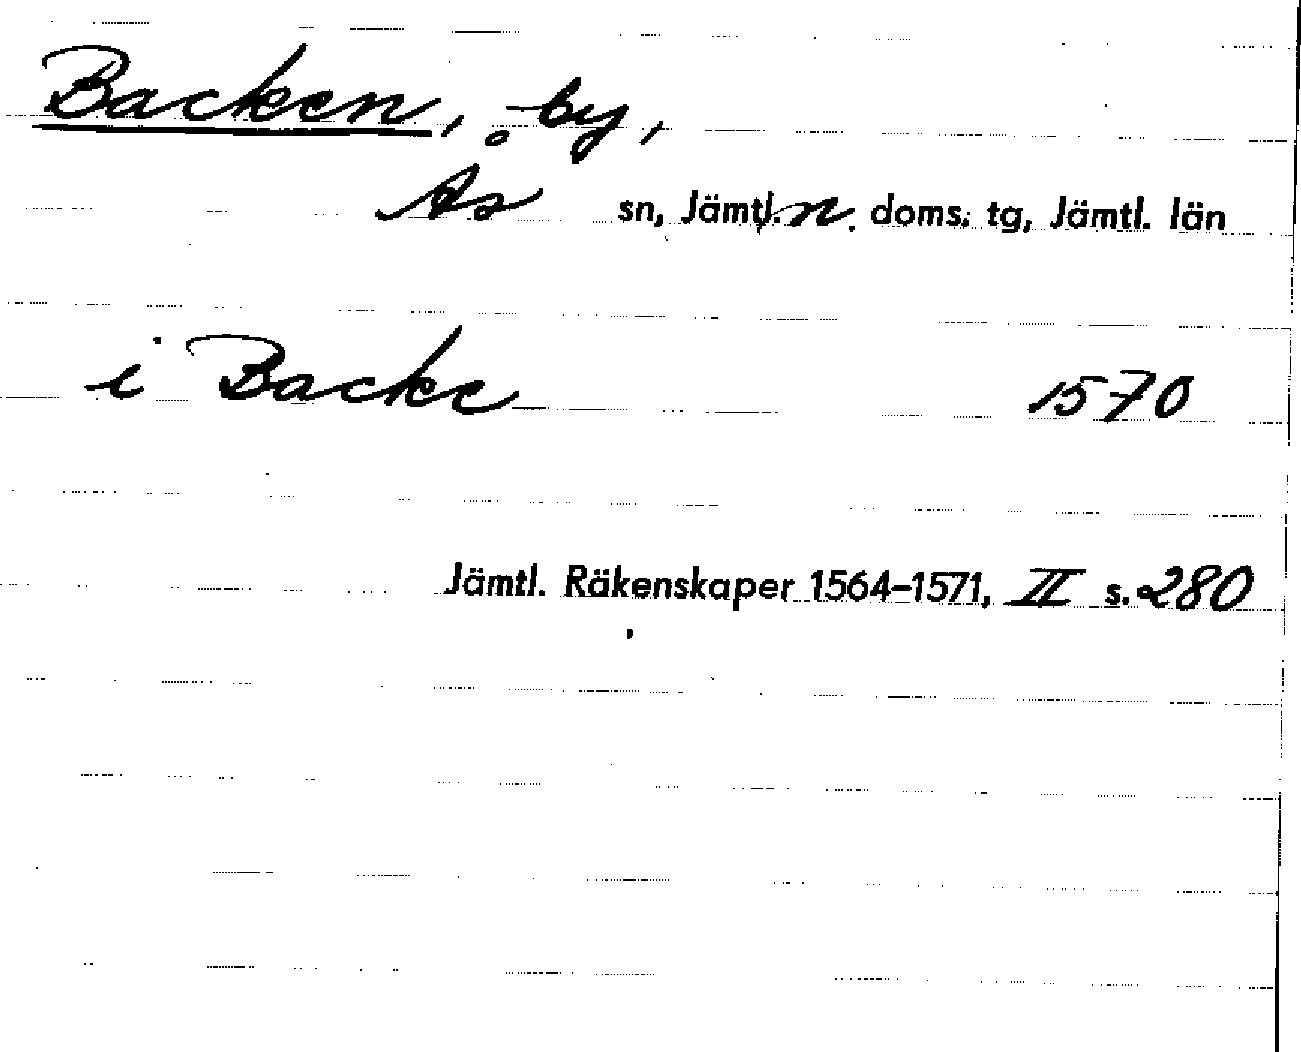 Backen, by,
Ås sn, Jämtl. n. doms. tg, Jämtl. län
i Backe 1570
Jämtl. Räkenskaper 1564–1571, II s. 280